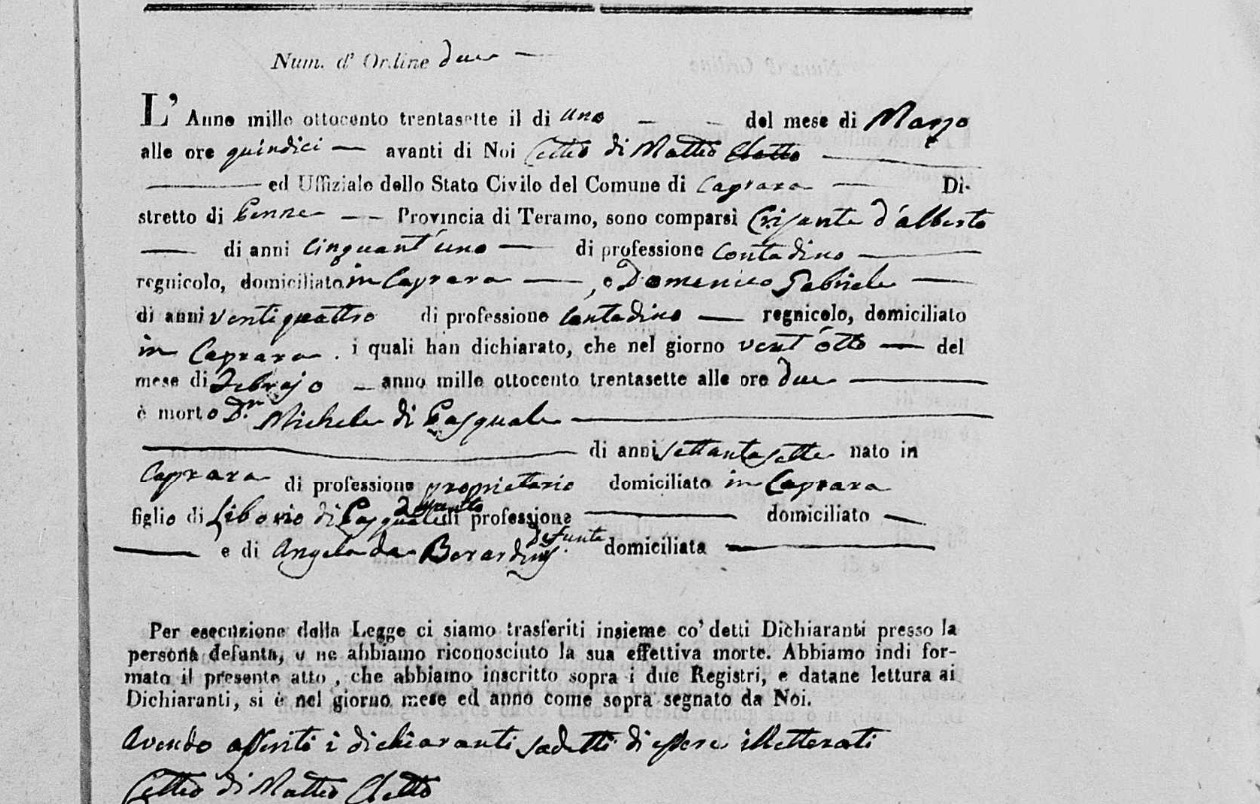 Num. d' Ordine due
L' Anno mille ottocento trentasette il di uno del mese di Marzo
alle ore quindici avanti di Noi di Matteo Eletto
ed Uffiziale dello Stato Civile del Comune di Caprara Di-
stretto di Penne Provincia di Teramo, sono comparsi Crisante d'alberto
di anni cinquant'uno di professione contadino
regnicolo, domiciliato in Caprara, e Domenico Gabriele
di anni ventiquattro di professione contadino regnicolo, domiciliato
in Caprara. i quali han dichiarato, che nel giorno vent'otto del
mese di Febrajo anno mille ottocento trentasette alle ore due
è morto Dn Michele di Pasquale
di anni settantasette nato in
Caprara di professione proprietario domiciliato in Caprara
figlio di Liborio di Pasquale defunto di professione domiciliato
e di Angela de Berardinis defunta domiciliata
Per esecuzione della Legge ci siamo trasferiti insieme co' detti Dichiaranti presso la
persona defunta, e ne abbiamo riconosciuto la sua effettiva morte. Abbiamo indi for-
mato il presente atto, che abbiamo inscritto sopra i due Registri, e datane lettura ai
Dichiaranti, si è nel giorno mese ed anno come sopra segnato da Noi.
Avendo asserito i dichiaranti sadetti di essere illetterati
di Matteo Eletto